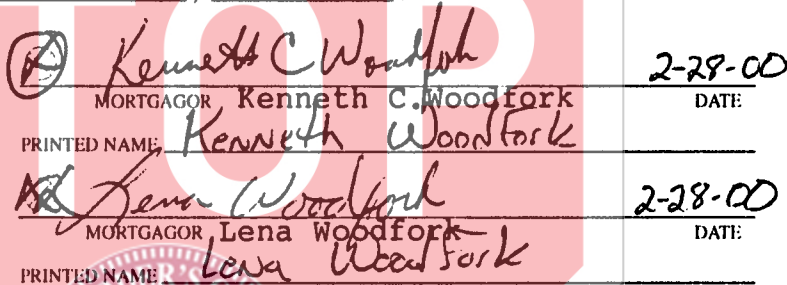 STOP
Kenneth C Woodfork 2-28-00
MORTGAGOR Kenneth C.Woodfork DATE
PRINTED NAME Kenneth Woodfork
Lena Woodfork 2-28-00
MORTGAGOR Lena Woodfork DATE
PRINTED NAME Lena Woodfork